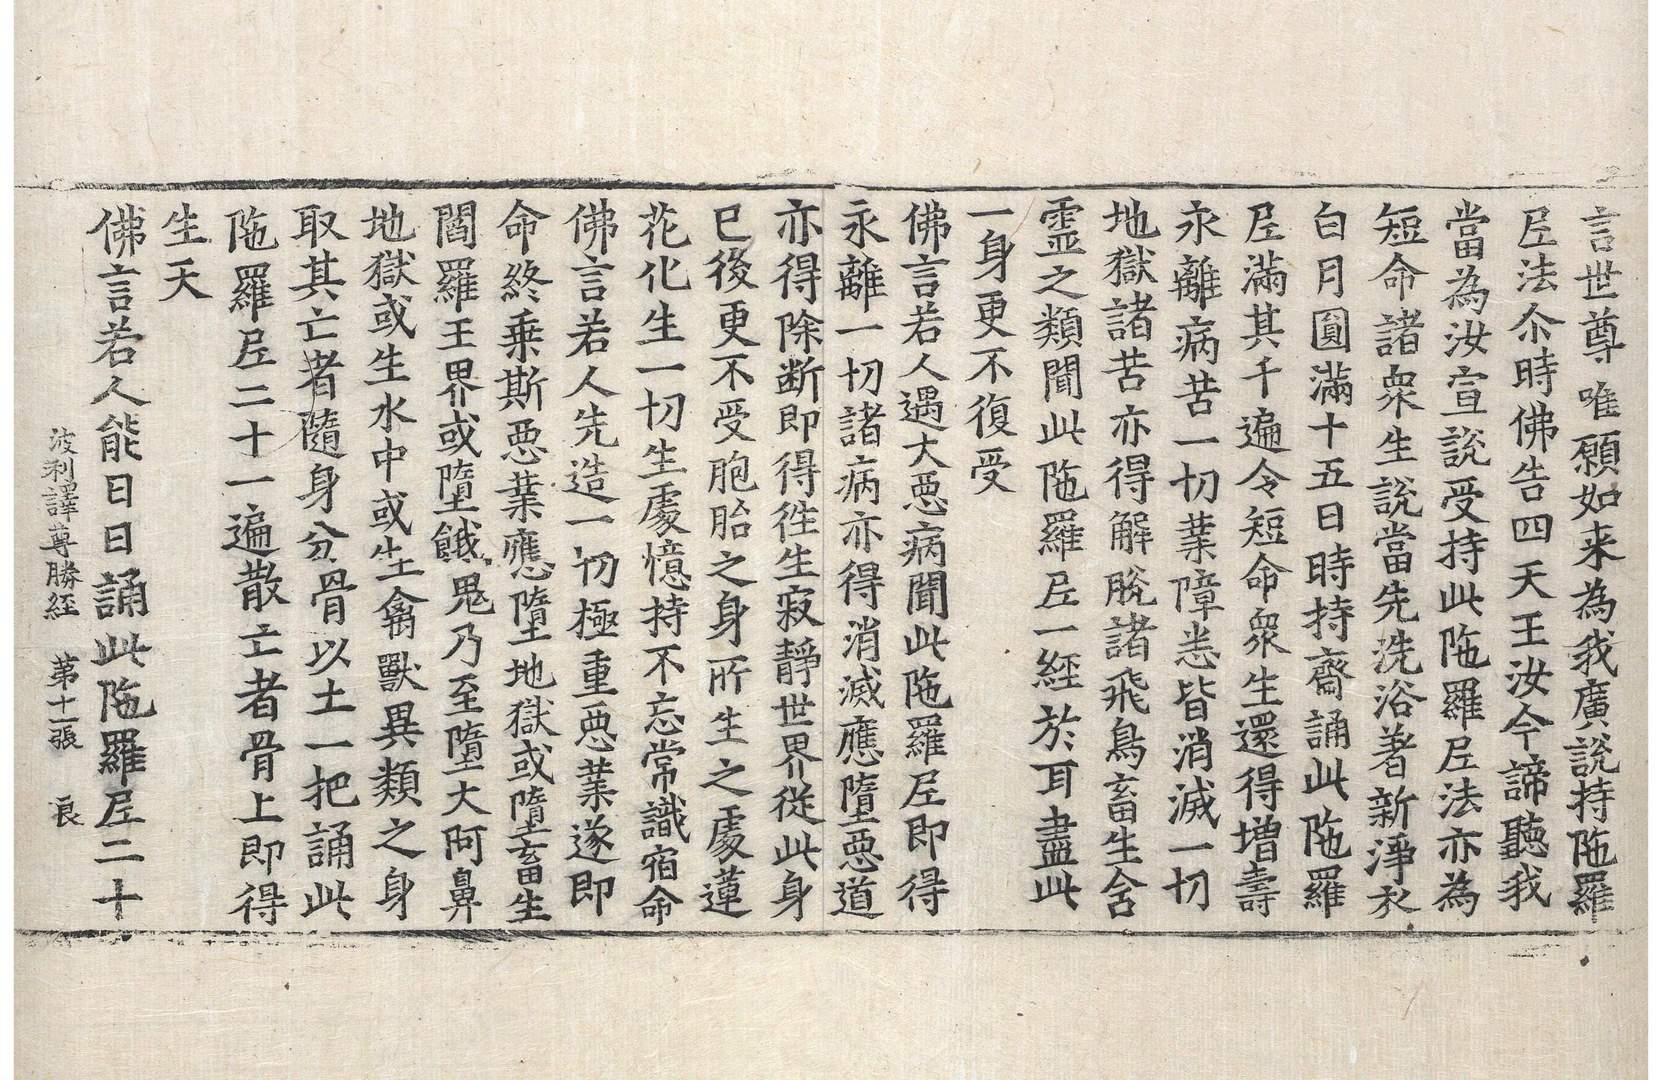 言世尊唯願如来為我廣說持陁羅
𡰱法尒時佛告四天王汝今諦聽我
當為汝宣說受持此陁羅𡰱法亦為
短命諸衆生說當先洗浴著新淨衣
白月圓滿十五日時持齋誦此陁羅
𡰱滿其千遍令短命衆生還得增壽
永離病苦一切業障悉皆消滅一切
地獄諸苦亦得解脫諸飛鳥畜生含
靈之類聞此陁羅𡰱一經於耳盡此
一身更不復受
佛言若人遇大惡病聞此陁羅𡰱即得
永離一切諸病亦得消滅應墮惡道
亦得除断即得往生寂靜世界從此身
已後更不受胞胎之身所生之處蓮
花化生一切生處憶持不忘常識宿命
佛言若人先造一切極重惡業遂即
命終乗斯惡業應墮地獄或墮畜生
閻羅王界或墮餓鬼乃至墮大阿鼻
地獄或生水中或生禽獸異類之身
取其亡者隨身分骨以土一把誦此
陁羅𡰱二十一遍散亡者骨上即得
生天
佛言若人能日日誦此陁羅𡰱二十
波利譯尊勝經 第十一張 良